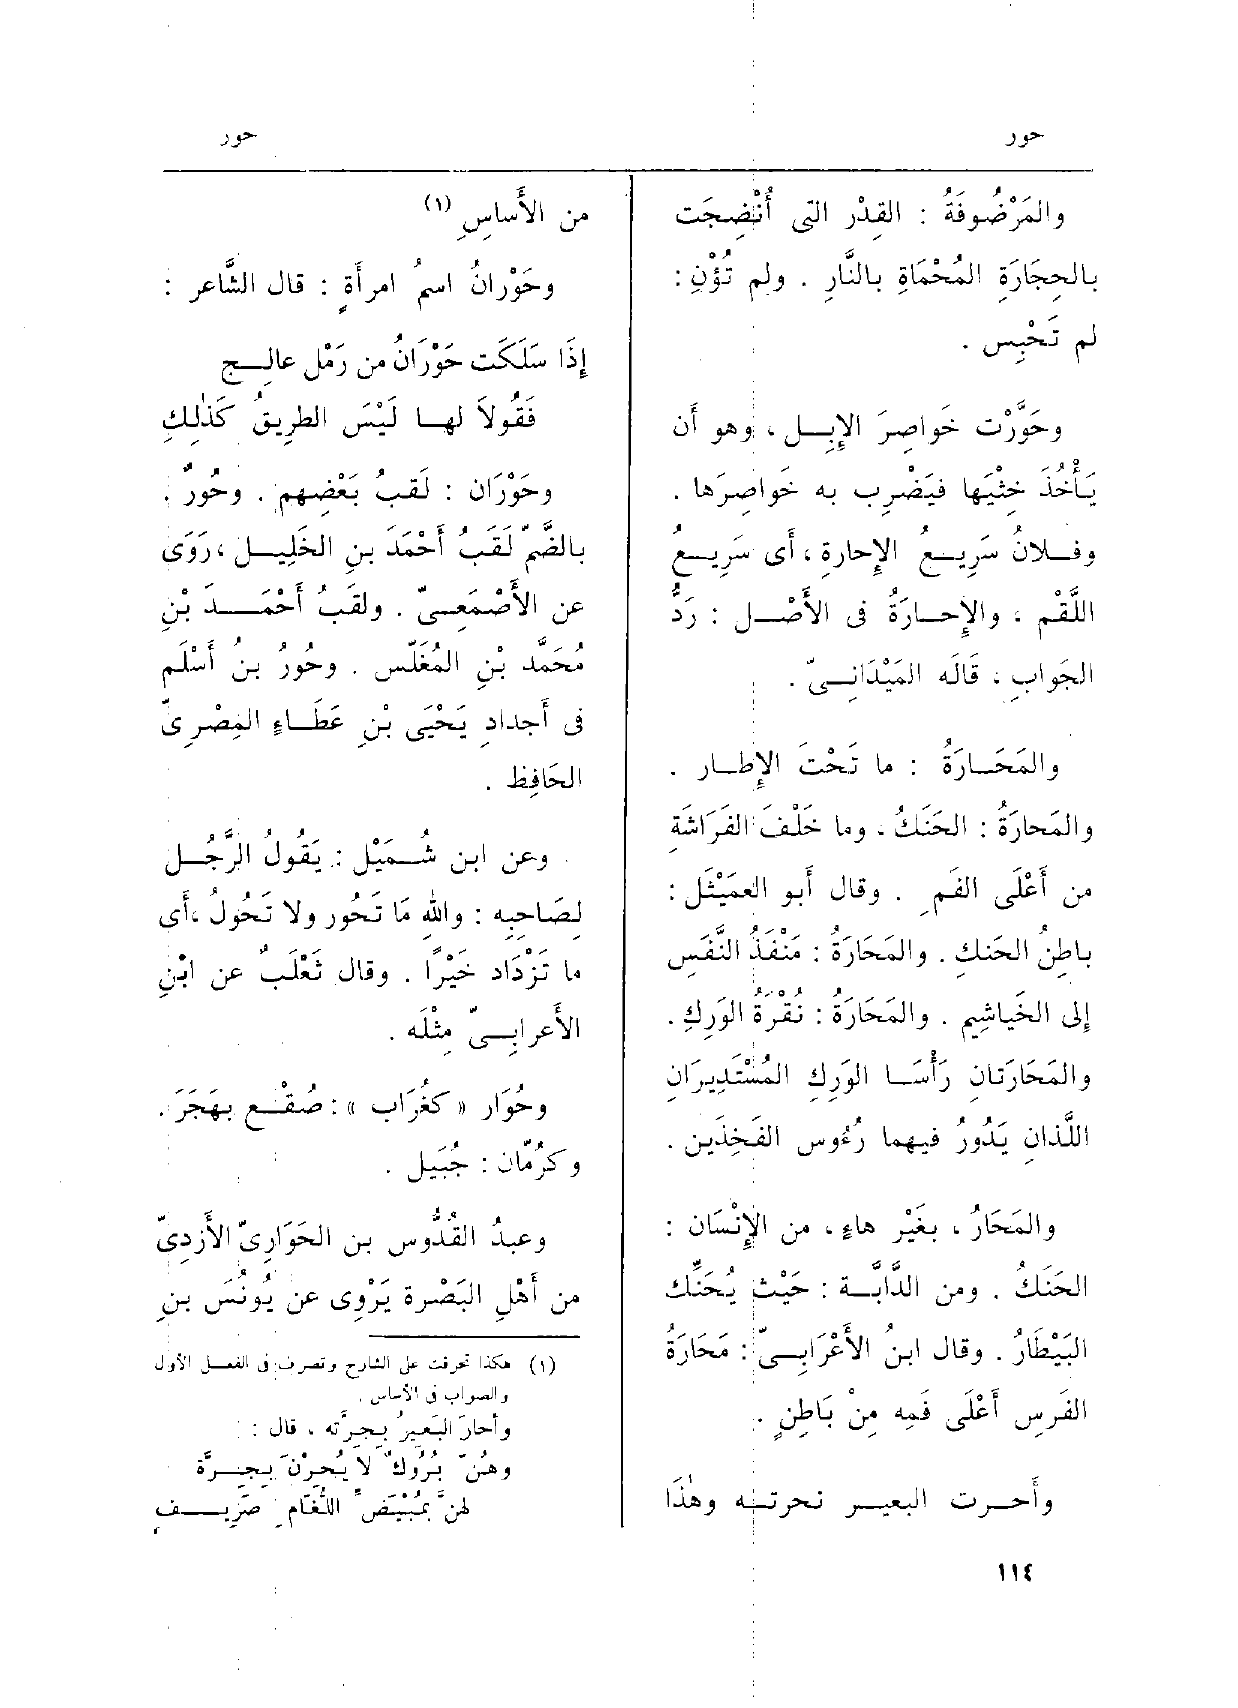 حور
حور
والمَرْضُوفَةُ : القِدْر التى أُنْضِجَت
بالحِجَارَةِ المُحْمَاةِ بالنَّارِ . ولم تُؤْنِ :
لم تَحْبِس .
وحَوَّرْت خَواصِرَ الإِبِل ، وهو أن
يَأْخُذَ خِثْيَها فيَضْرِب به خَواصِرَها .
وفلانٌ سَرِيعُ الإِحارةِ ، أى سَرِيعُ
اللَّقْم ، والإِحارَةُ فى الأَصْل : رَدُّ
الجَوابِ ، قَالَه المَيْدَانِىّ .
والمَحَارَةُ : ما تَحْتَ الإِطار .
والمَحارَةُ : الحَنَكُ ، وما خَلْفَ الفَرَاشَةِ
من أَعْلَى الفَمِ . وقال أبو العَمَيْثَل :
باطِنُ الحَنكِ . والمَحَارَةُ : مَنْفَذُ النَّفَسِ
إلى الخَيَاشِيمِ . والمَحَارَةُ : نُقْرَةُ الوَرِكِ .
والمَحَارَتانِ رَأْسَا الوَرِكِ المُسْتَدِيرَانِ
اللَّذانِ يَدُورُ فيهما رُءُوس الفَخِذَين .
والمَحَارُ ، بغَيْر هاءٍ ، من الإِنْسَان :
الحَنَكُ . ومن الدَّابَّة : حَيْث يُحَنِّك
البَيْطَارُ . وقال ابنُ الأَعْرَابِىّ : مَحَارَةُ
الفَرَسِ أَعْلَى فَمِه مِنْ بَاطِنٍ .
وأَحرت البعير نحرته وهٰذَا
من الأَساسِ (١)
وحَوْرانُ اسمُ امرأَةٍ : قال الشَّاعر :
إِذَا سَلَكَت حَوْرَانُ من رَمْل عالِج
فَقُولاَ لها لَيْسَ الطرِيقُ كَذٰلِكِ
وحَوْرَان : لَقَبُ بَعْضِهم . وحُورٌ .
بالضَّمّ لَقَبُ أَحْمَدَ بنِ الخَلِيل ، رَوَى
عن الأَصْمَعِىّ . ولقَبُ أَحْمَدَ بْنِ
مُحَمَّد بْنِ المُغَلِّس . وحُورُ بنُ أَسْلَم
فى أَجدادِ يَحْيَى بْنِ عَطَاءٍ المِصْرِىّ
الحَافِظ .
وعن ابن شُمَيْل : يَقُولُ الرَّجُل
لِصَاحِبِه : واللهِ مَا تَحُور ولا تَحُولُ ، أَى
ما تَزْدَاد خَيْرًا . وقال ثَعْلَبٌ عن ابْنِ
الأَعرابِىّ مِثْلَه .
وحُوَار « كغُرَابِ » : صُقْع بهَجَرَ .
وكرُمَّان : جُبَيل .
وعبدُ القُدُّوس بن الحَوَارِىّ الأَزدِىّ
من أَهْلِ البَصْرة يَرْوِى عن يُونُسَ بنِ
(١) هكذا تحرفت على الشارح وتصرف فى الفعل الأول
والصواب فى الأساس .
وأَحارَ البَعيرُ بِجِرَّته ، قال :
وهُنّ بُرُوكٌ لاَ يُحِرْنَ بِجِرَّة
لهنّ بمُبْيَضِّ اللُّغَامِ صَرِيف
١١٤